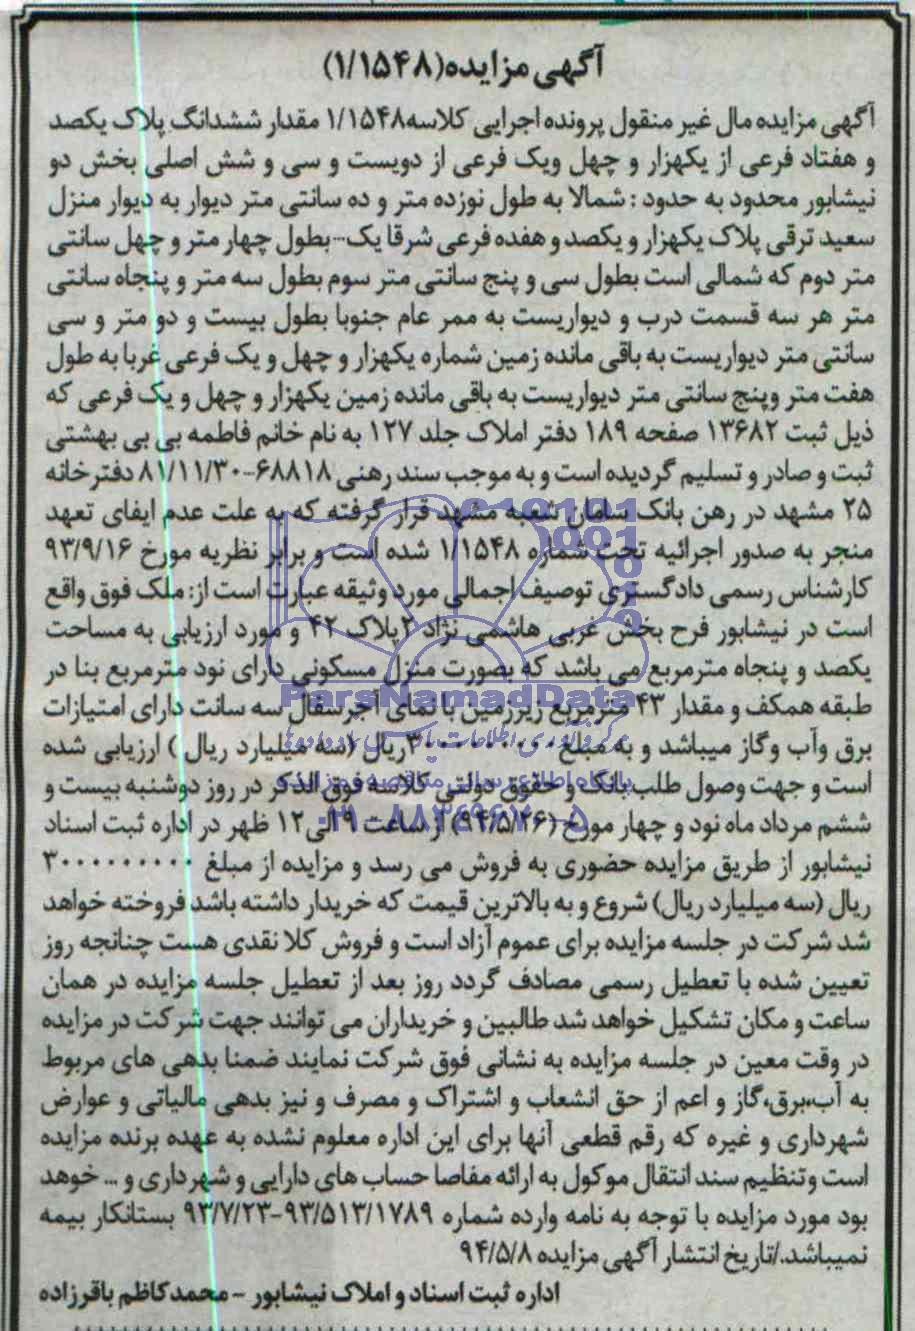 آگهی مزایده(۱/۱۵۴۸)
آگهی مزایده مال غیر منقول پرونده اجرایی کلاسه۱/۱۵۴۸ مقدار ششدانگ پلاک یکصد
و هفتاد فرعی از یکهزار و چهل ویک فرعی از دویست و سی و شش اصلی بخش دو
نیشابور محدود به حدود : شمالا به طول نوزده متر و ده سانتی متر دیوار به دیوار منزل
سعید ترقی پلاک یکهزار و یکصد و هفده فرعی شرقا یک--بطول چهار متر و چهل سانتی
متر دوم که شمالی است بطول سی و پنج سانتی متر سوم بطول سه متر و پنجاه سانتی
متر هر سه قسمت درب و دیواریست به ممر عام جنوبا بطول بیست و دو متر و سی
سانتی متر دیواریست به باقی مانده زمین شماره یکهزار و چهل و یک فرعی غربا به طول
هفت متر وپنج سانتی متر دیواریست به باقی مانده زمین یکهزار و چهل و یک فرعی که
ذیل ثبت ۱۳۶۸۲ صفحه ۱۸۹ دفتر املاک جلد ۱۲۷ به نام خانم فاطمه بی بی بهشتی
ثبت و صادر و تسلیم گردیده است و به موجب سند رهنی ۶۸۸۱۸-۸۱/۱۱/۳۰ دفترخانه
۲۵ مشهد در رهن بانک سامان شعبه مشهد قرار گرفته که به علت عدم ایفای تعهد
منجر به صدور اجرائیه تحت شماره ۱/۱۵۴۸ شده است و برابر نظریه مورخ ۹۳/۹/۱۶
کارشناس رسمی دادگستری توصیف اجمالی مورد وثیقه عبارت است از: ملک فوق واقع
است در نیشابور فرح بخش غربی هاشمی نژاد ۲پلاک ۴۲ و مورد ارزیابی به مساحت
یکصد و پنجاه مترمربع می باشد که بصورت منزل مسکونی دارای نود مترمربع بنا در
طبقه همکف و مقدار ۴۳ مترمربع زیرزمین با نمای آجرسفال سه سانت دارای امتیازات
برق وآب وگاز میباشد و به مبلغ ۳۰۰۰۰۰۰۰۰۰ریال (سه میلیارد ریال ) ارزیابی شده
است و جهت وصول طلب بانک و حقوق دولتی کلاسه فوق الذکر در روز دوشنبه بیست و
ششم مرداد ماه نود و چهار مورخ (۹۴/۵/۲۶) از ساعت ۹الی۱۲ ظهر در اداره ثبت اسناد
نیشابور از طریق مزایده حضوری به فروش می رسد و مزایده از مبلغ ۳۰۰۰۰۰۰۰۰۰
ریال (سه میلیارد ریال) شروع و به بالاترین قیمت که خریدار داشته باشد فروخته خواهد
شد شرکت در جلسه مزایده برای عموم آزاد است و فروش کلا نقدی هست چنانجه روز
تعیین شده با تعطیل رسمی مصادف گردد روز بعد از تعطیل جلسه مزایده در همان
ساعت و مکان تشکیل خواهد شد طالبین و خریداران می توانند جهت شرکت در مزایده
در وقت معین در جلسه مزایده به نشانی فوق شرکت نمایند ضمنا بدهی های مربوط
به آب،برق،گاز و اعم از حق انشعاب و اشتراک و مصرف و نیز بدهی مالیاتی و عوارض
شهرداری و غیره که رقم قطعی آنها برای این اداره معلوم نشده به عهده برنده مزایده
است وتنظیم سند انتقال موکول به ارائه مفاصا حساب های دارایی و شهرداری و ... خوهد
بود مورد مزایده با توجه به نامه وارده شماره ۹۳/۵۱۳/۱۷۸۹-۹۳/۷/۲۳ بستانکار بیمه
نمیباشد./تاریخ انتشار آگهی مزایده ۹۴/۵/۸
اداره ثبت اسناد و املاک نیشابور - محمدکاظم باقرزاده
ParsNamadData